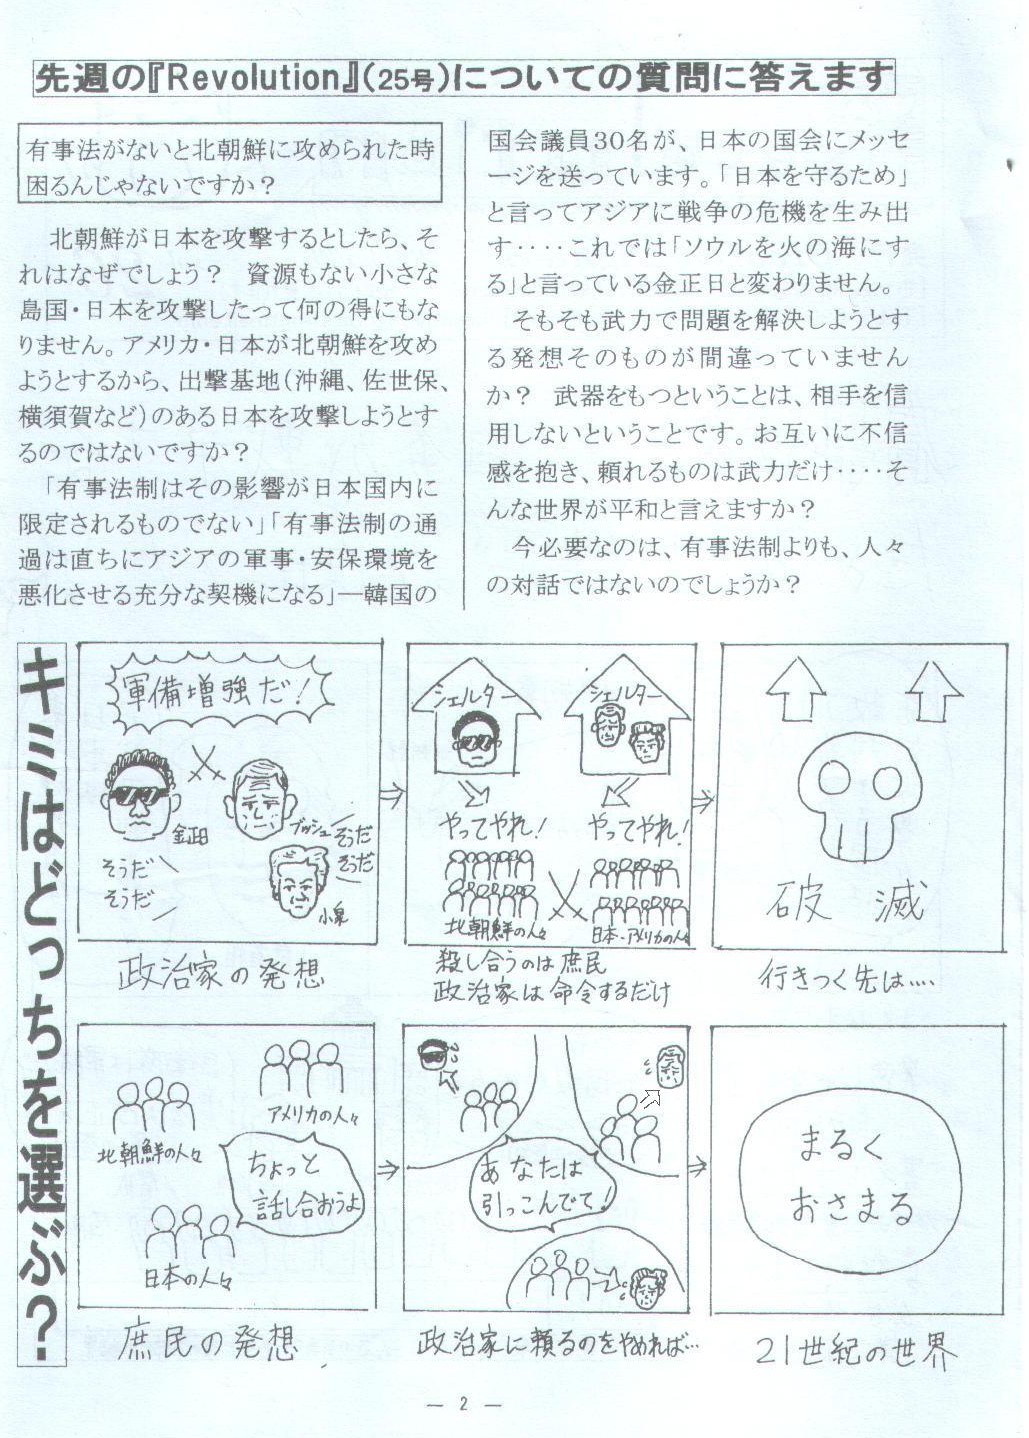 先週の『Revolution』(25号)についての質問に答えます
有事法がないと北朝鮮に攻められた時
困るんじゃないですか？
北朝鮮が日本を攻撃するとしたら、そ
れはなぜでしょう？　資源もない小さな
島国・日本を攻撃したって何の得にもな
りません。アメリカ・日本が北朝鮮を攻め
ようとするから、出撃基地(沖縄、佐世保、
横須賀など)のある日本を攻撃しようとす
るのではないですか？
「有事法制はその影響が日本国内に
限定されるものでない」「有事法制の通
過は直ちにアジアの軍事・安保環境を
悪化させる充分な契機になる」―韓国の
国会議員30名が、日本の国会にメッセ
ージを送っています。「日本を守るため」
と言ってアジアに戦争の危機を生み出
す‥‥これでは「ソウルを火の海にす
る」と言っている金正日と変わりません。
そもそも武力で問題を解決しようとす
る発想そのものが間違っていません
か？　武器をもつということは、相手を信
用しないということです。お互いに不信
感を抱き、頼れるものは武力だけ‥‥そ
んな世界が平和と言えますか？
今必要なのは、有事法制よりも、人々
の対話ではないのでしょうか？
キミはどっちを選ぶ？
軍備増強だ！
金正日
ブッシュ
そうだ
そうだ
そうだ
そうだ
小泉
政治家の発想
シェルター
シェルター
やってやれ！
やってやれ！
北朝鮮の人々
日本・アメリカの人々
殺し合うのは庶民
政治家は命令するだけ
破滅
行きつく先は‥‥
アメリカの人々
北朝鮮の人々
ちょっと
話し合おうよ
日本の人々
庶民の発想
あなたは
引っこんでて！
政治家に頼るのをやめれば…
まるく
おさまる
21世紀の世界
― 2 ―